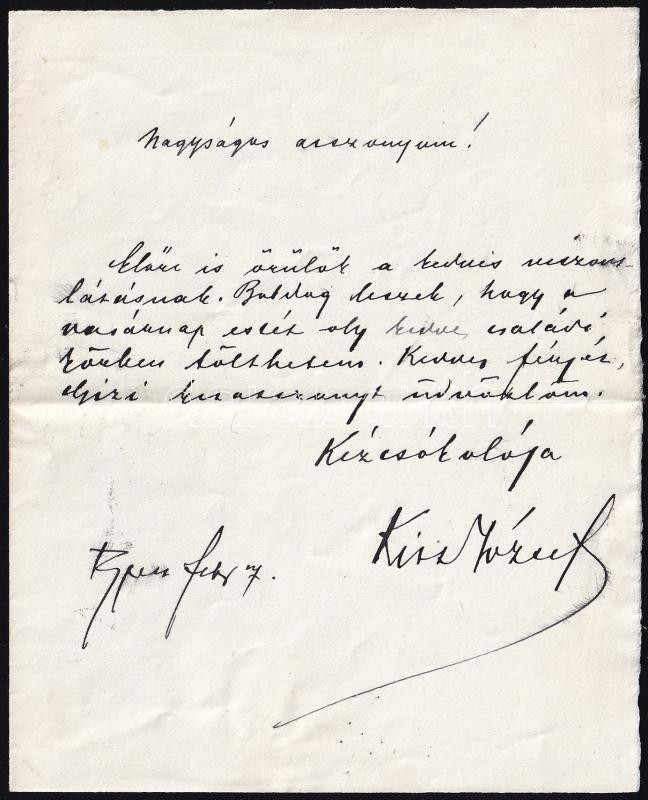 Nagyságos asszonyom!
Előre is örülök a kedves viszont-
látásnak. Boldog leszek, hogy a
vasárnap estét oly kedves családi
körben tölthetem. Kedves férjét,
Gizi kisasszonyt üdvözlöm.
Kézcsókolója
Kiss József
febr 7.